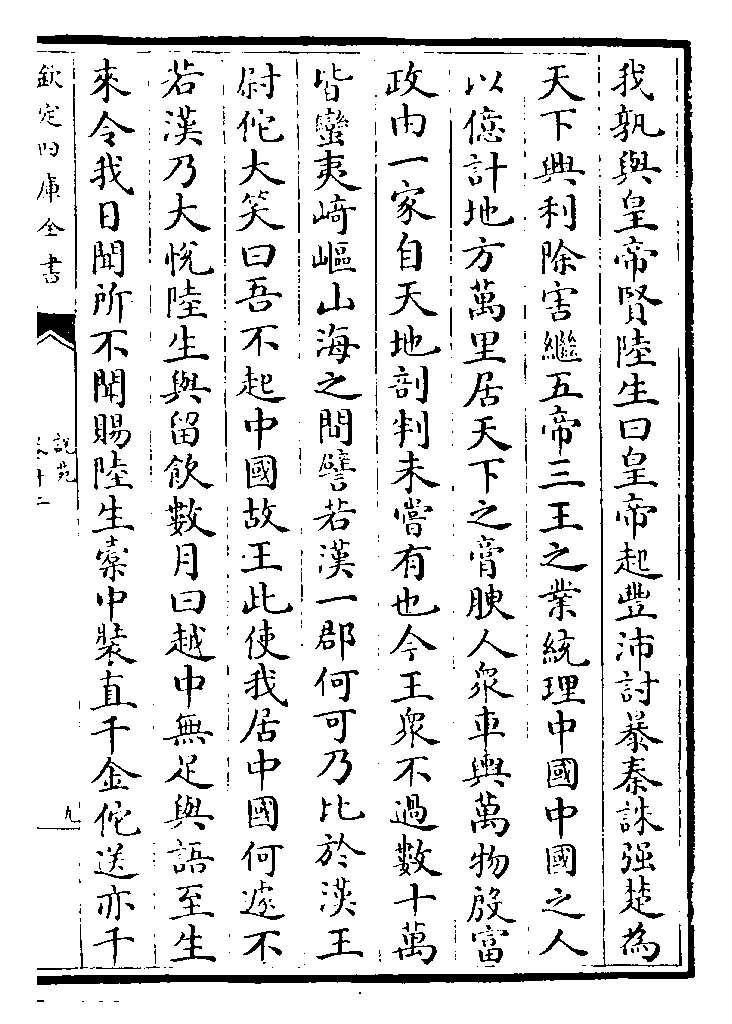 我孰與皇帝賢陸生曰皇帝起豐沛討暴秦誅强楚為
天下興利除害繼五帝三王之業統理中國中國之人
以億計地方萬里居天下之膏腴人衆車輿萬物殷富
政由一家自天地剖判未嘗有也今王衆不過數十萬
皆蠻夷﨑嶇山海之間譬若漢一郡何可乃比於漢王
尉佗大笑曰吾不起中國故王此使我居中國何遽不
若漢乃大悅陸生與留飲數月曰越中無足與語至生
來令我日聞所不聞賜陸生橐中裝直千金佗送亦千
欽定四庫全書
說苑
卷十二
九